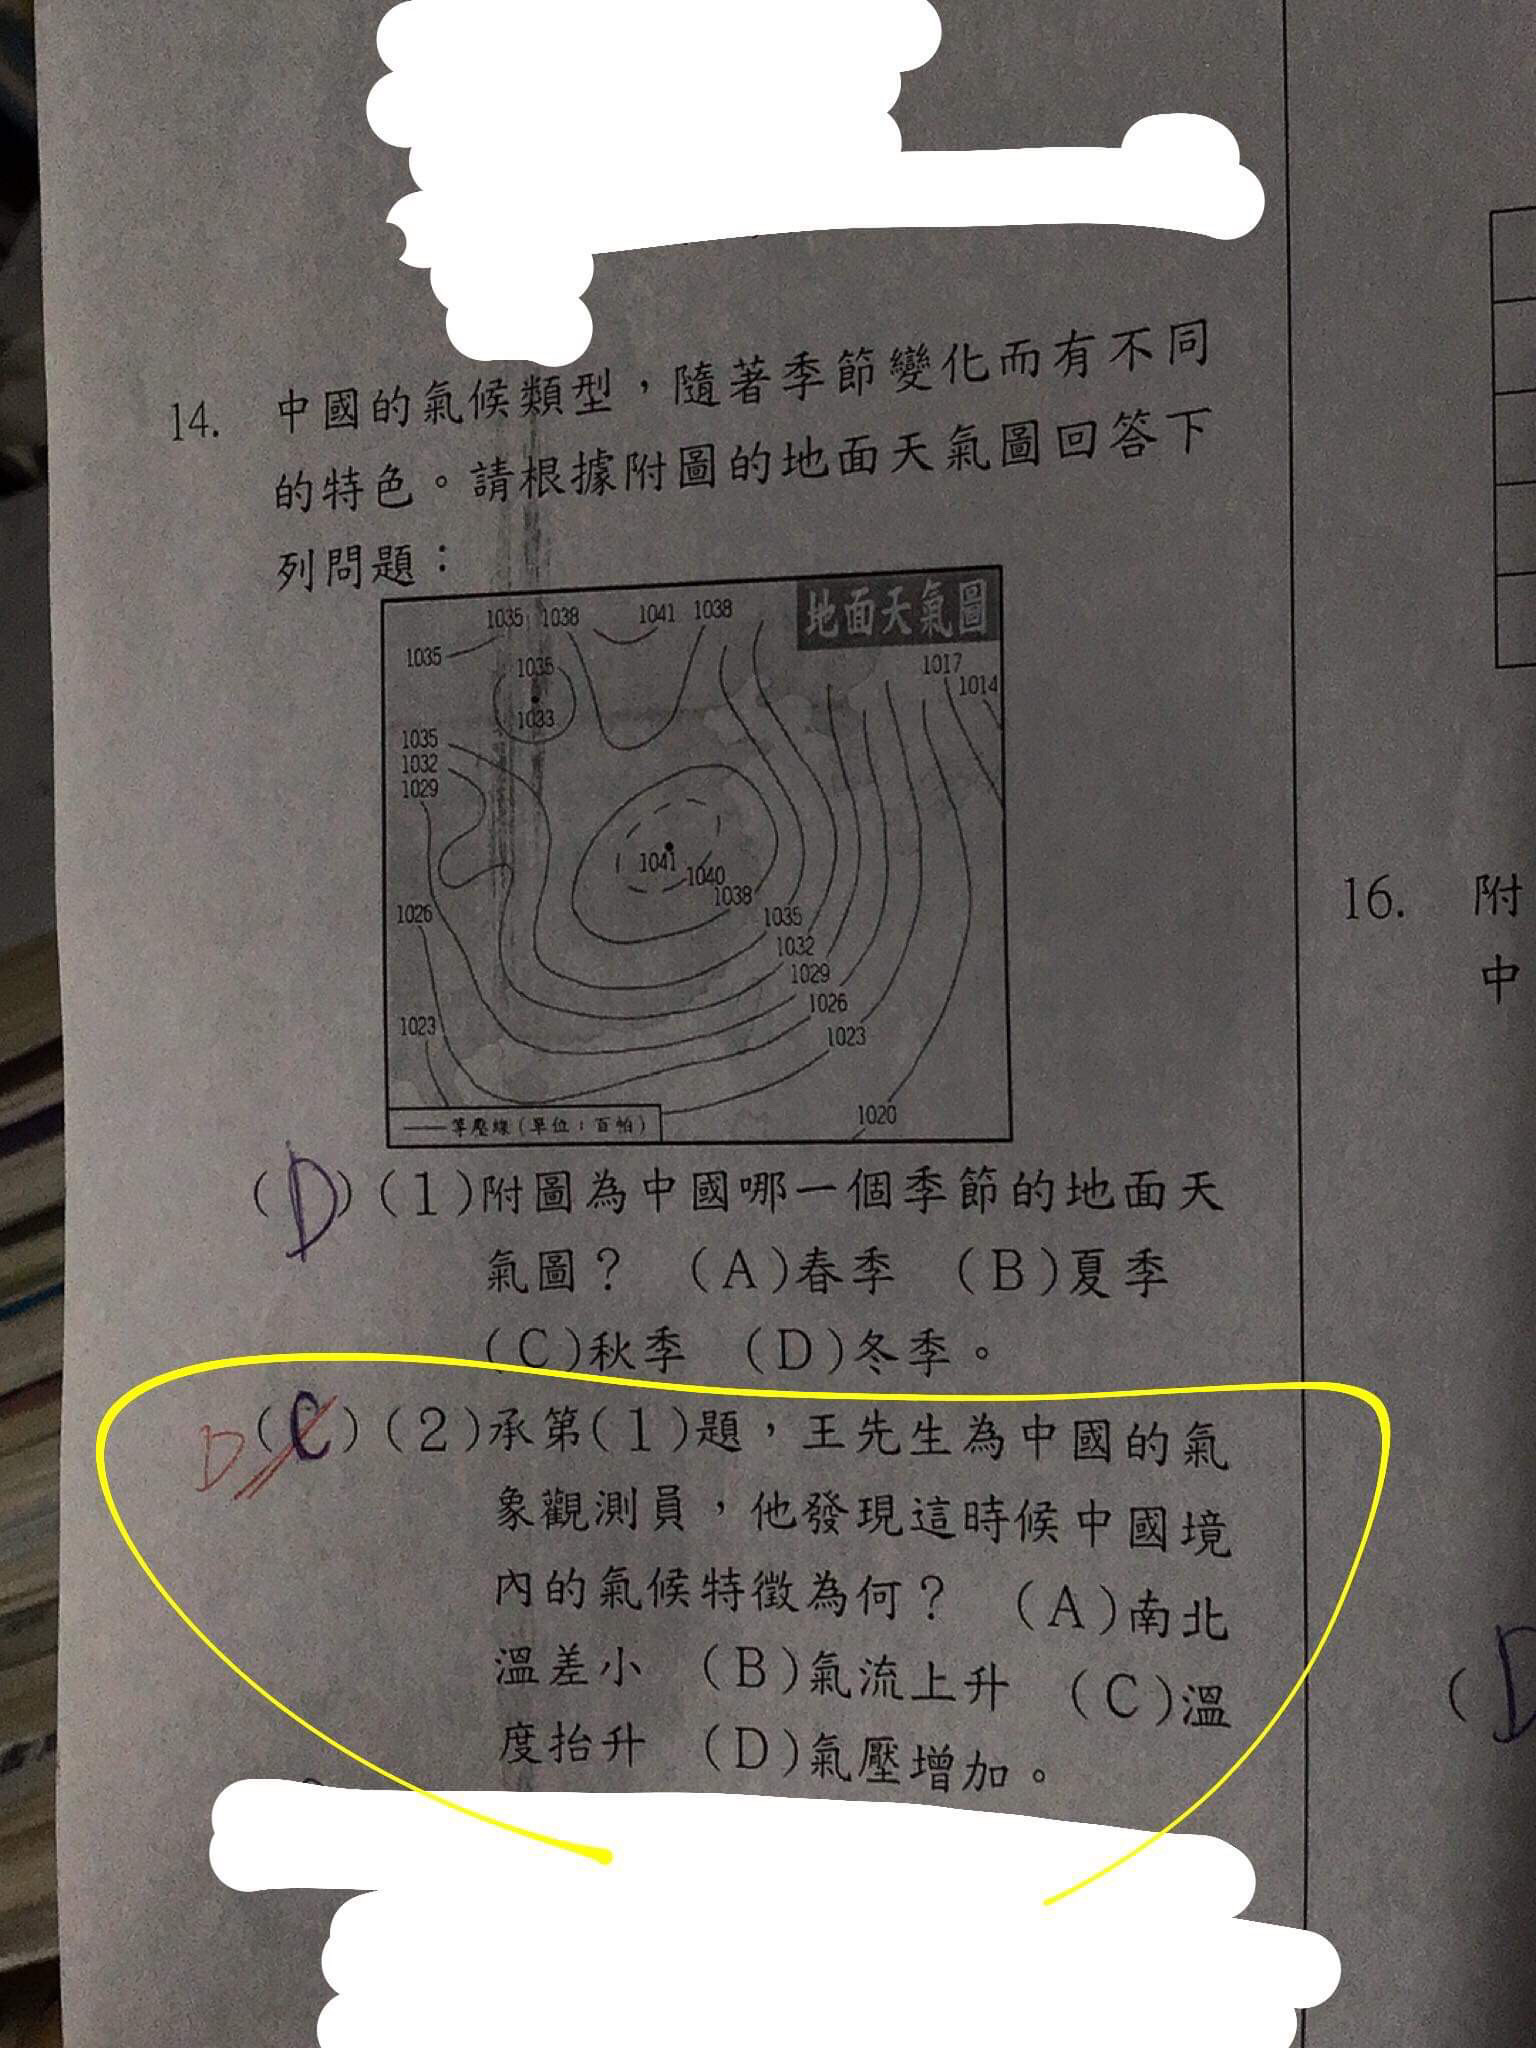 14. 中國的氣候類型，隨著季節變化而有不同
的特色。請根據附圖的地面天氣圖回答下
列問題：
地面天氣圖
1035 1038 1041 1038
1035
1035
1033
1017
1014
1035
1032
1029
1041
1040
1038
1026
1035
1032
1029
1026
1023
1023
1020
等壓線(單位：百帕)
(D)(1)附圖為中國哪一個季節的地面天
氣圖？ (A)春季 (B)夏季
(C)秋季 (D)冬季。
D(C)(2)承第(1)題，王先生為中國的氣
象觀測員，他發現這時候中國境
內的氣候特徵為何？ (A)南北
溫差小 (B)氣流上升 (C)溫
度抬升 (D)氣壓增加。
16. 附
中
(D